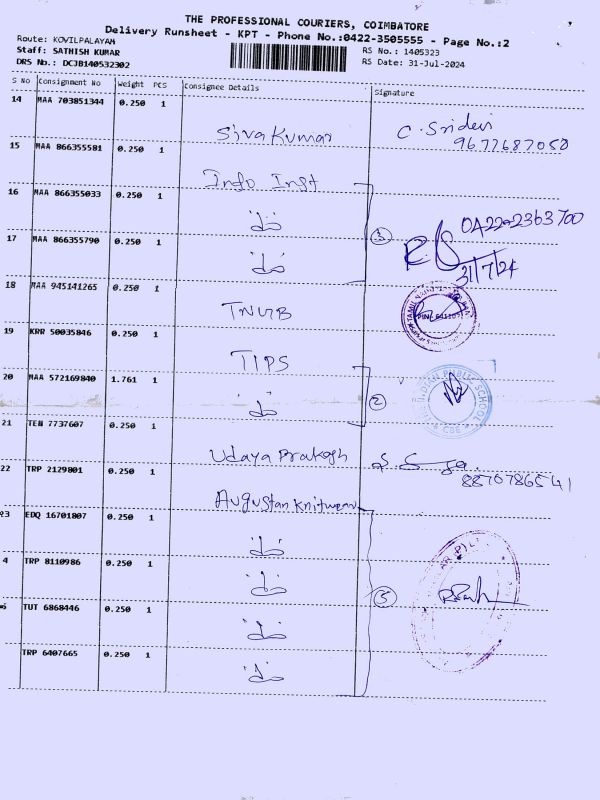 THE PROFESSIONAL COURIERS, COIMBATORE
Delivery Runsheet - KPT - Phone No.:0422-3505555 - Page No.:2
Route: KOVILPALAYAM
Staff: SATHISH KUMAR
DRS No.: DCJB140532302
RS No.: 1405323
RS Date: 31-Jul-2024
S No Consignment No Weight PCS Consignee Details Signature
14 MAA 703851344 0.250 1 Siva Kumar C. Sridevi
9677687050
15 MAA 866355581 0.250 1 Info Inst
16 MAA 866355033 0.250 1
0422-2363700
17 MAA 866355790 0.250 1
31/7/24
18 MAA 945141265 0.250 1 TNUB
19 KRR 50035846 0.250 1 TIPS
20 MAA 572169840 1.761 1
2
PUBLIC SCHOOL
CBE
21 TEN 7737607 0.250 1 Udaya Prakash
22 TRP 2129801 0.250 1 Augustan Knitwear
8870786541
23 EDQ 16701807 0.250 1
4 TRP 8110986 0.250 1
5
TUT 6868446 0.250 1
TRP 6407665 0.250 1